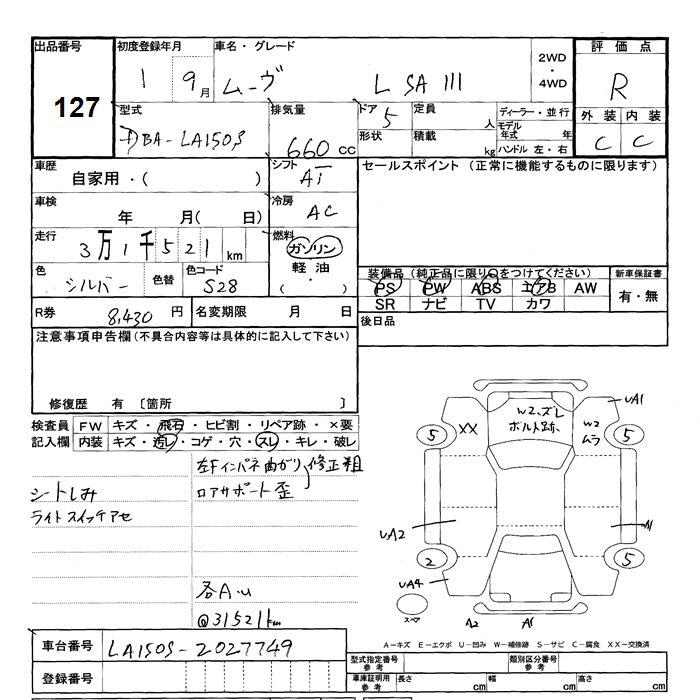 出品番号
127
初度登録年月
1 9月
車名・グレード
ムーヴ L SA III
2WD
・
4WD
評価点
R
外装 内装
C C
型式
DBA-LA150S
排気量
660cc
ドア 5
形状
定員 人
積載 kg
ディーラー・並行
モデル年式 年
ハンドル 左・右
車歴
自家用・( )
シフト
AT
セールスポイント (正常に機能するものに限ります)
車検
年 月( 日)
冷房
AC
走行
3万1千521km
燃料
ガソリン
軽油
( ・ )
色
シルバー
色替
色コード
S28
装備品(純正品に限り○をつけてください)
PS PW ABS エアB AW
SR ナビ TV カワ
新車保証書
有・無
R券 8,430円
名変期限 月 日
後日品
注意事項申告欄(不具合内容等は具体的に記入して下さい)
修復歴 有 〔箇所 〕
検査員
記入欄
FW キズ・飛石・ヒビ割・リペア跡・×要
内装 キズ・汚レ・コゲ・穴・スレ・キレ・破レ
左Fインパネ曲がり 修正粗
ロアサポート歪
シートしみ
ライトスイッチアセ
各A・U
@31521km
W2.ズレ
ボルト跡、
XX
W2
ムラ
UA1
5
5
UA2
A1
2
5
UA4
スペア
A2
A1
車台番号
LA150S-2027749
登録番号
A-キズ E-エクボ U-凹み W-補修跡 S-サビ C-腐食 XX-交換済
型式指定番号
参考
類別区分番号
参考
車庫証明用
参考
長さ cm
幅 cm
高さ cm